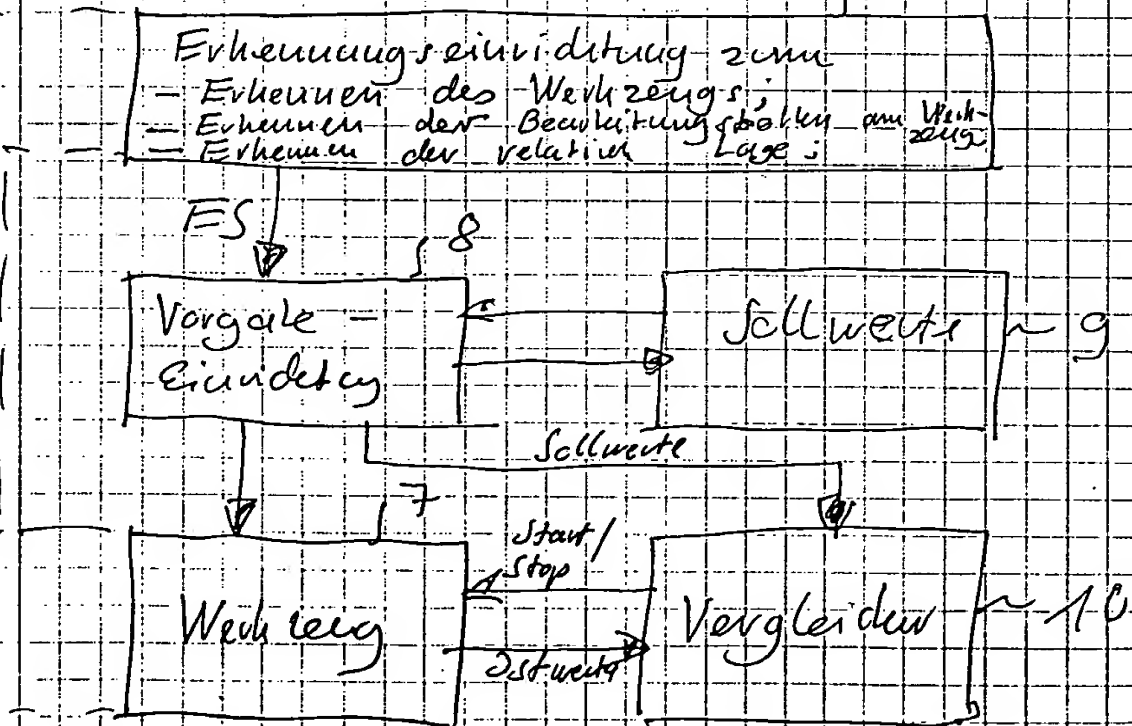 Erkennungseinrichtung zum
- Erkennen des Werkzeugs;
- Erkennen der Bearbeitungsstellen am Werk-
zeug
- Erkennen der relativen Lage;
ES
8
Vorgabe -
Einrichtung
Sollwerte
~ 9
Sollwerte
7
Start/
Stop
Werkzeug
Vergleicher
~ 10
Istwerte